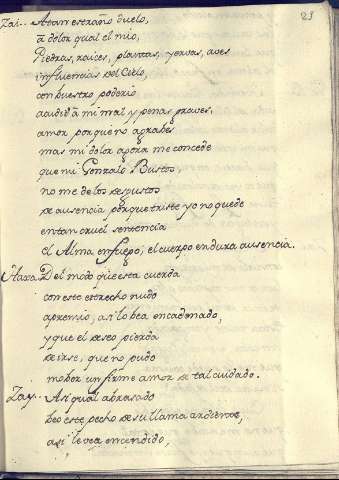 23
Zai.. A tan estraño duelo,
a dolor qual el mio,
Piedras, raices, plantas, yervas, aves
influencias del Cielo,
con buestro poderio
acudid à mi mal y penas graves,
amor porque no agrabes
mas mi dolor agora me concede
que mi Gonzalo Bustos
no me de los desgustos
de ausencia porque triste yo no quede
en tan cruel sentencia
el Alma en fuego, el cuerpo en dura ausencia.
Del modo que esta cuerda
con este estrecho nudo
apremio, asi lo bea encadenado,
y que el deseo pierda
de irse, que no pudo
mober un firme amor de tal cuidado.
Zay.. Asi qual abrasado
beo este pecho de su llama ardiente,
asi le vea encendido,